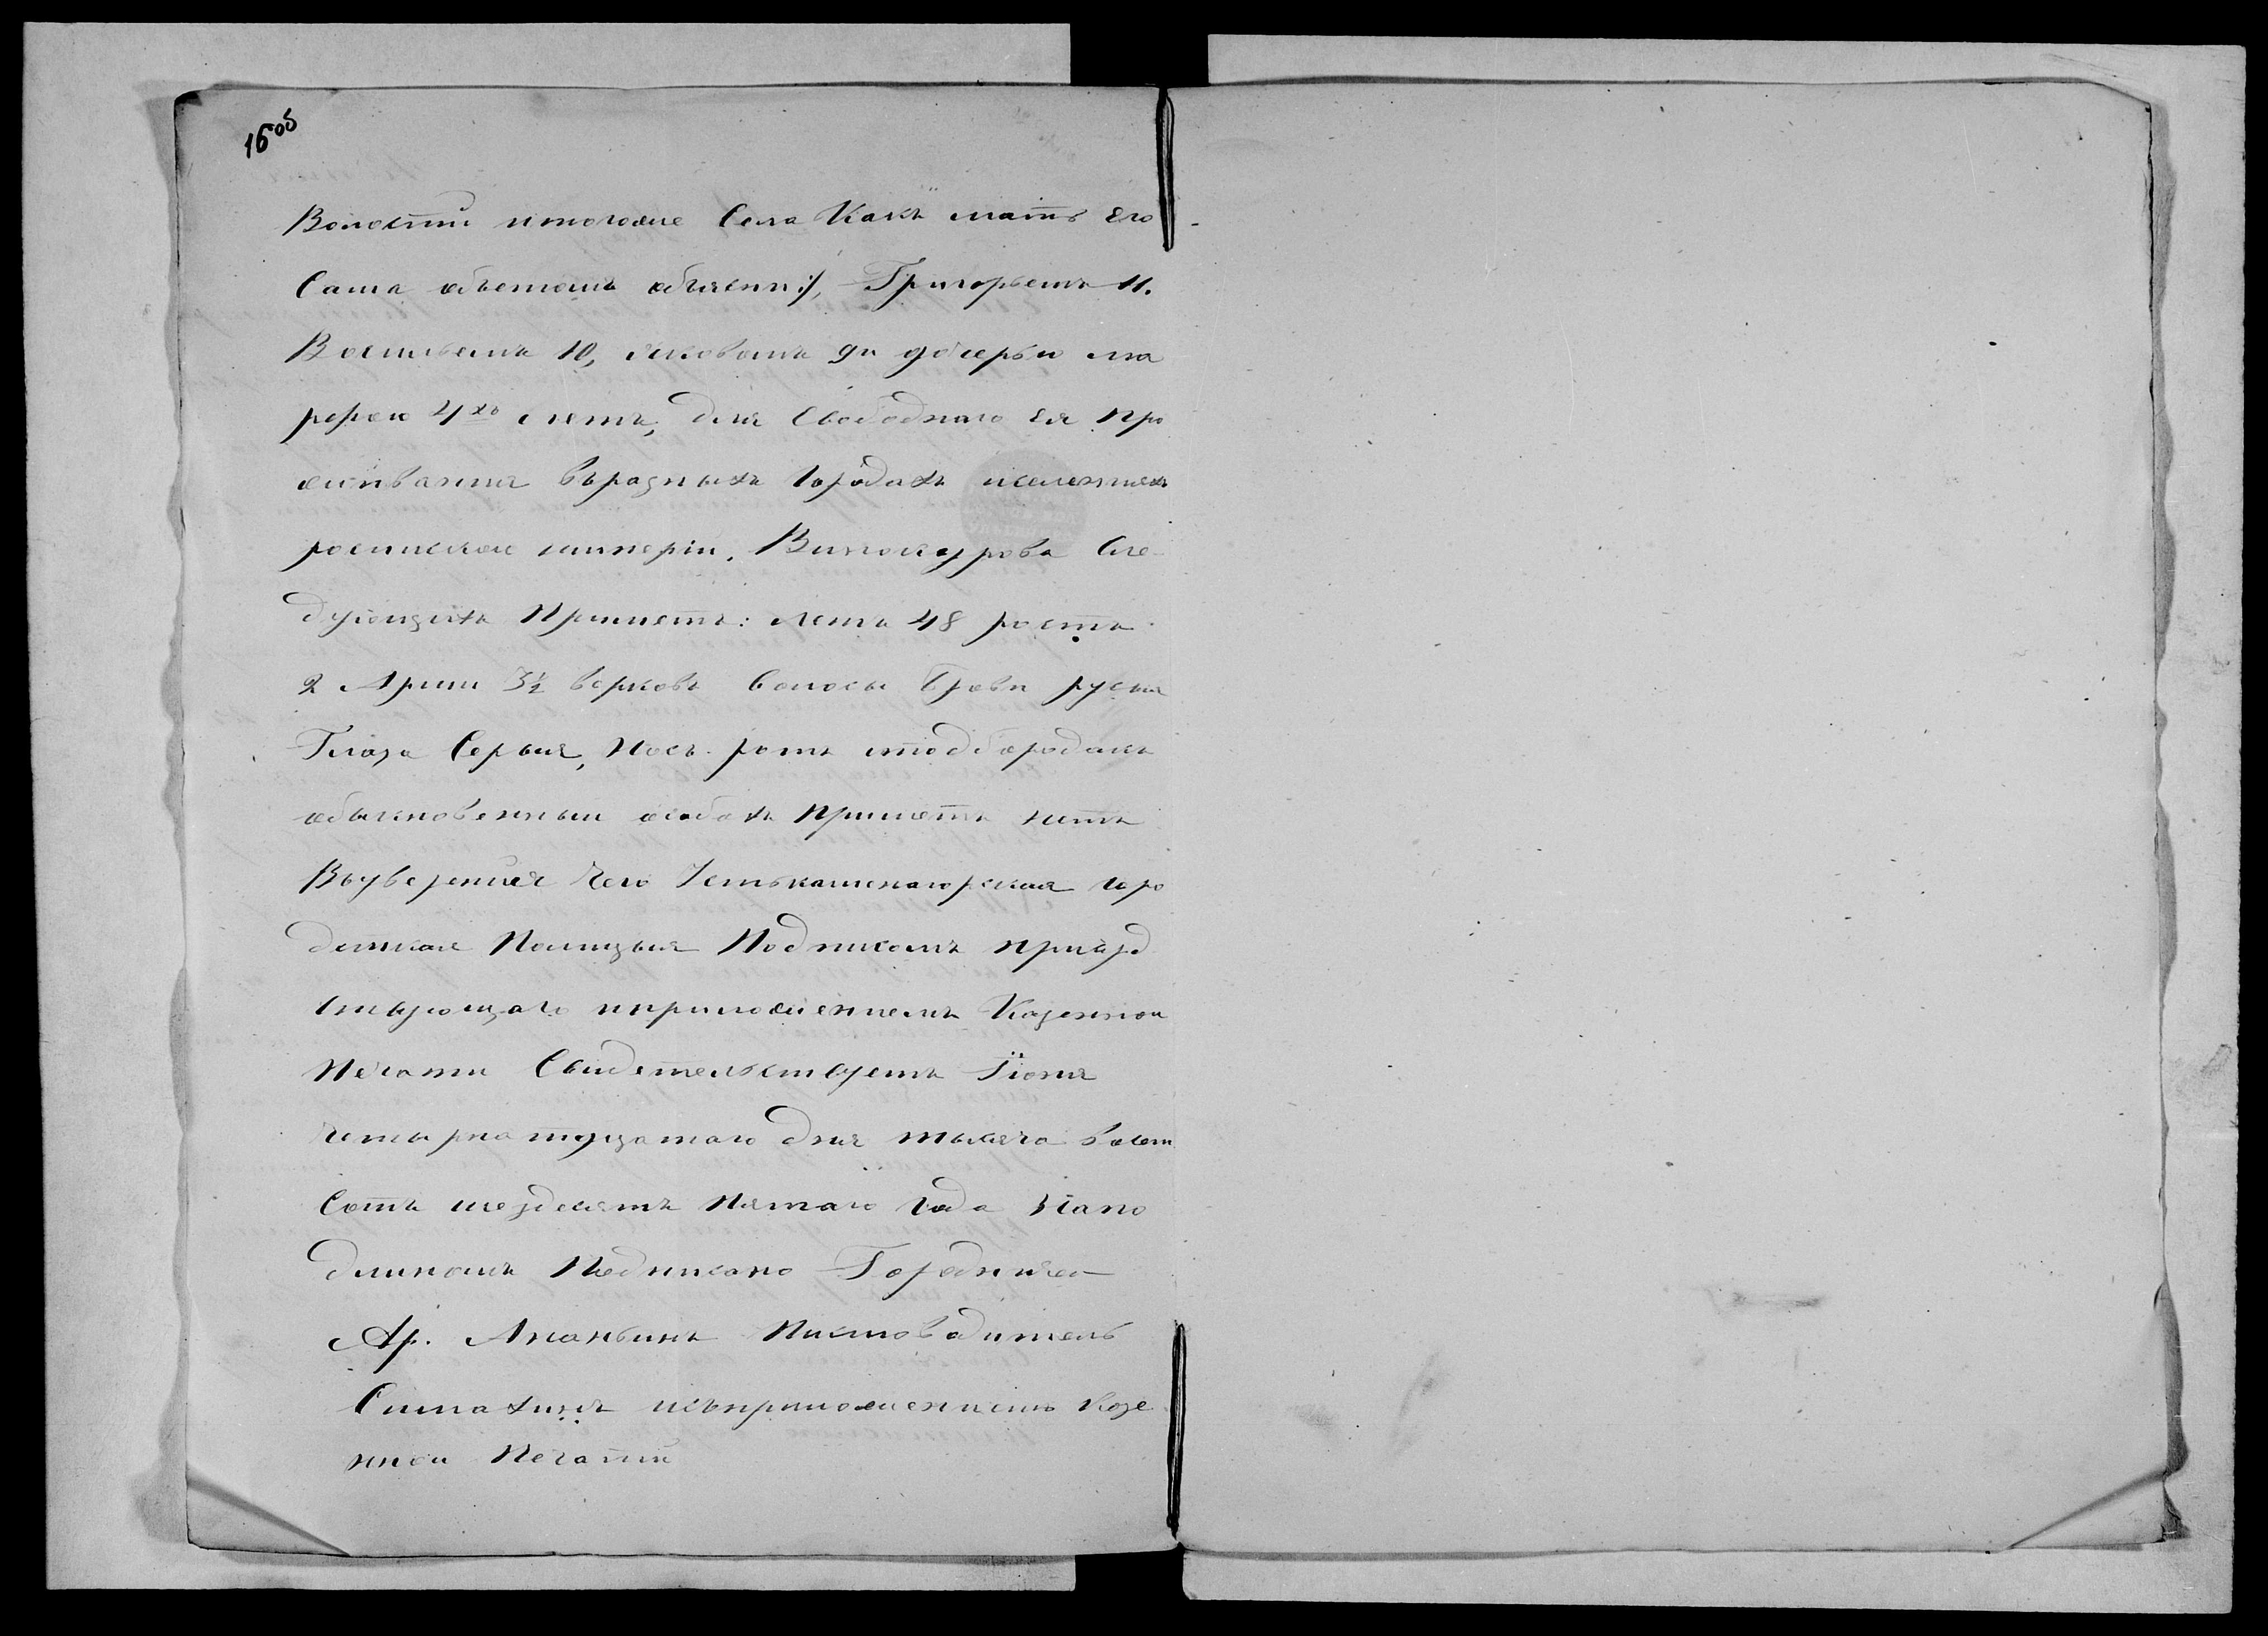 16 об
Волости итогоже Села Какъ мать Его
Сама обетомъ обяснн:/, Григорьемъ 11.
Васильемъ 10, Яковомъ 9и дочерью Ма
рфою 4хъ летъ, для Свободнаго Ея Про
живания въразныхъ Городахъ иселенияхъ
росииской империи. Винокурова Сле-
дующихъ Приметъ: летъ 48 ростъ
2 Арши 3½ верховъ волосы Брови русыя
Глаза Серыя, Носъ. ротъ иподбородакъ
обыкновенныи особыхъ приметъ нетъ
Въуверения чего Устькаменагорская горо
дитская Полицыя Подписомъ присуд
ствующаго иприложениемъ Казеннои
Печати Свидетельствуетъ Іюня
четырнатцатаго дня тысяча восем
Сотъ шездесятъ Пятаго Года Напо
длиномъ Подписано Городничеи
Ар. Ананьинъ Писмоводитель
исъприложениемъ Казе
ннои Печати